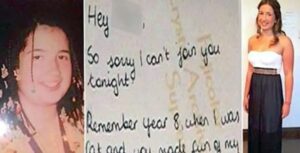 Hey
So sorry I can't join you
tonight!
Remember year 8, when I was
fat and you made fun of my